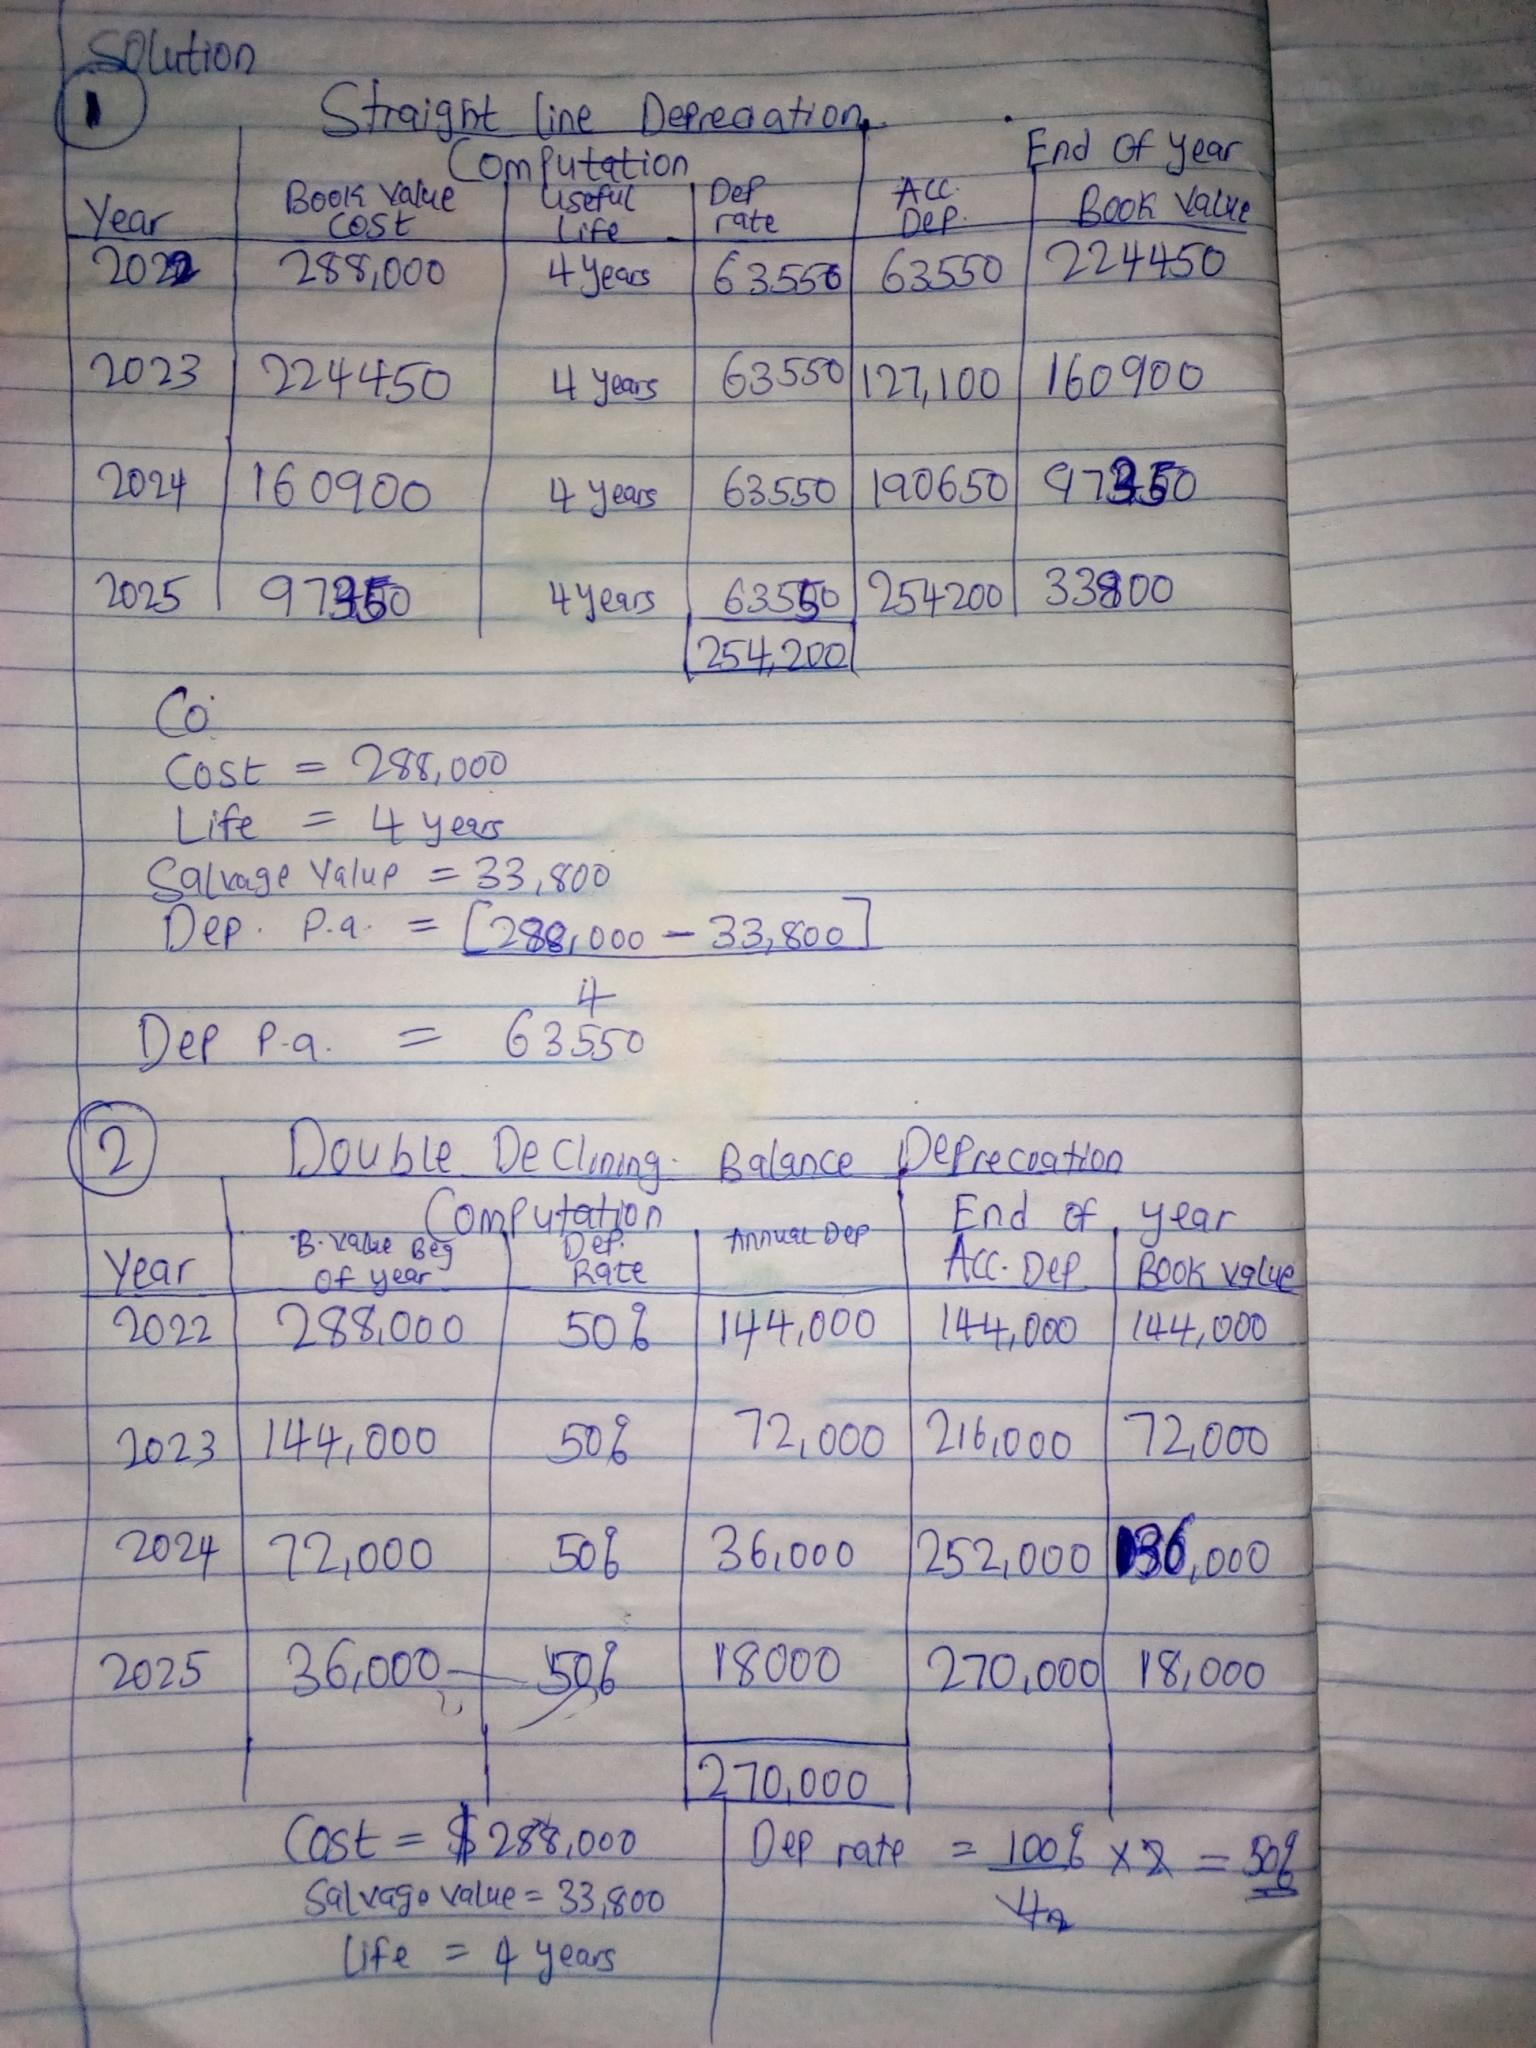 Solution
1 Straight Line Depreciation
Computation End Of year
Year Book Value Cost Useful Life Dep rate Acc. Dep. Book Value
2022 288,000 4 years 63550 63550 224450
2023 224450 4 years 63550 127,100 160900
2024 160900 4 years 63550 190650 97350
2025 97350 4 years 63550 254200 33800
254,200
Co
Cost = 288,000
Life = 4 years
Salvage Value = 33,800
Dep. P.a. = [288,000 - 33,800]
4
Dep P.a. = 63550
2 Double Declining Balance Depreciation
Computation End of year
Year B. Value Beg of year Dep. Rate Annual Dep Acc. Dep Book value
2022 288,000 50% 144,000 144,000 144,000
2023 144,000 50% 72,000 216,000 72,000
2024 72,000 50% 36,000 252,000 36,000
2025 36,000 50% 18000 270,000 18,000
270,000
Cost = $288,000 Dep rate = 100% x 2 = 50%
4
Salvage value = 33,800
Life = 4 years